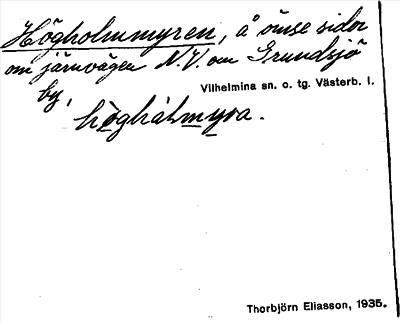 Högholmmyren, å ömse sidor
om järnvägen N.V. om Grundsjö
by,
Vilhelmina sn. o. tg. Västerb. l.
hö̀ghálmyra.
Thorbjörn Eliasson, 1935.